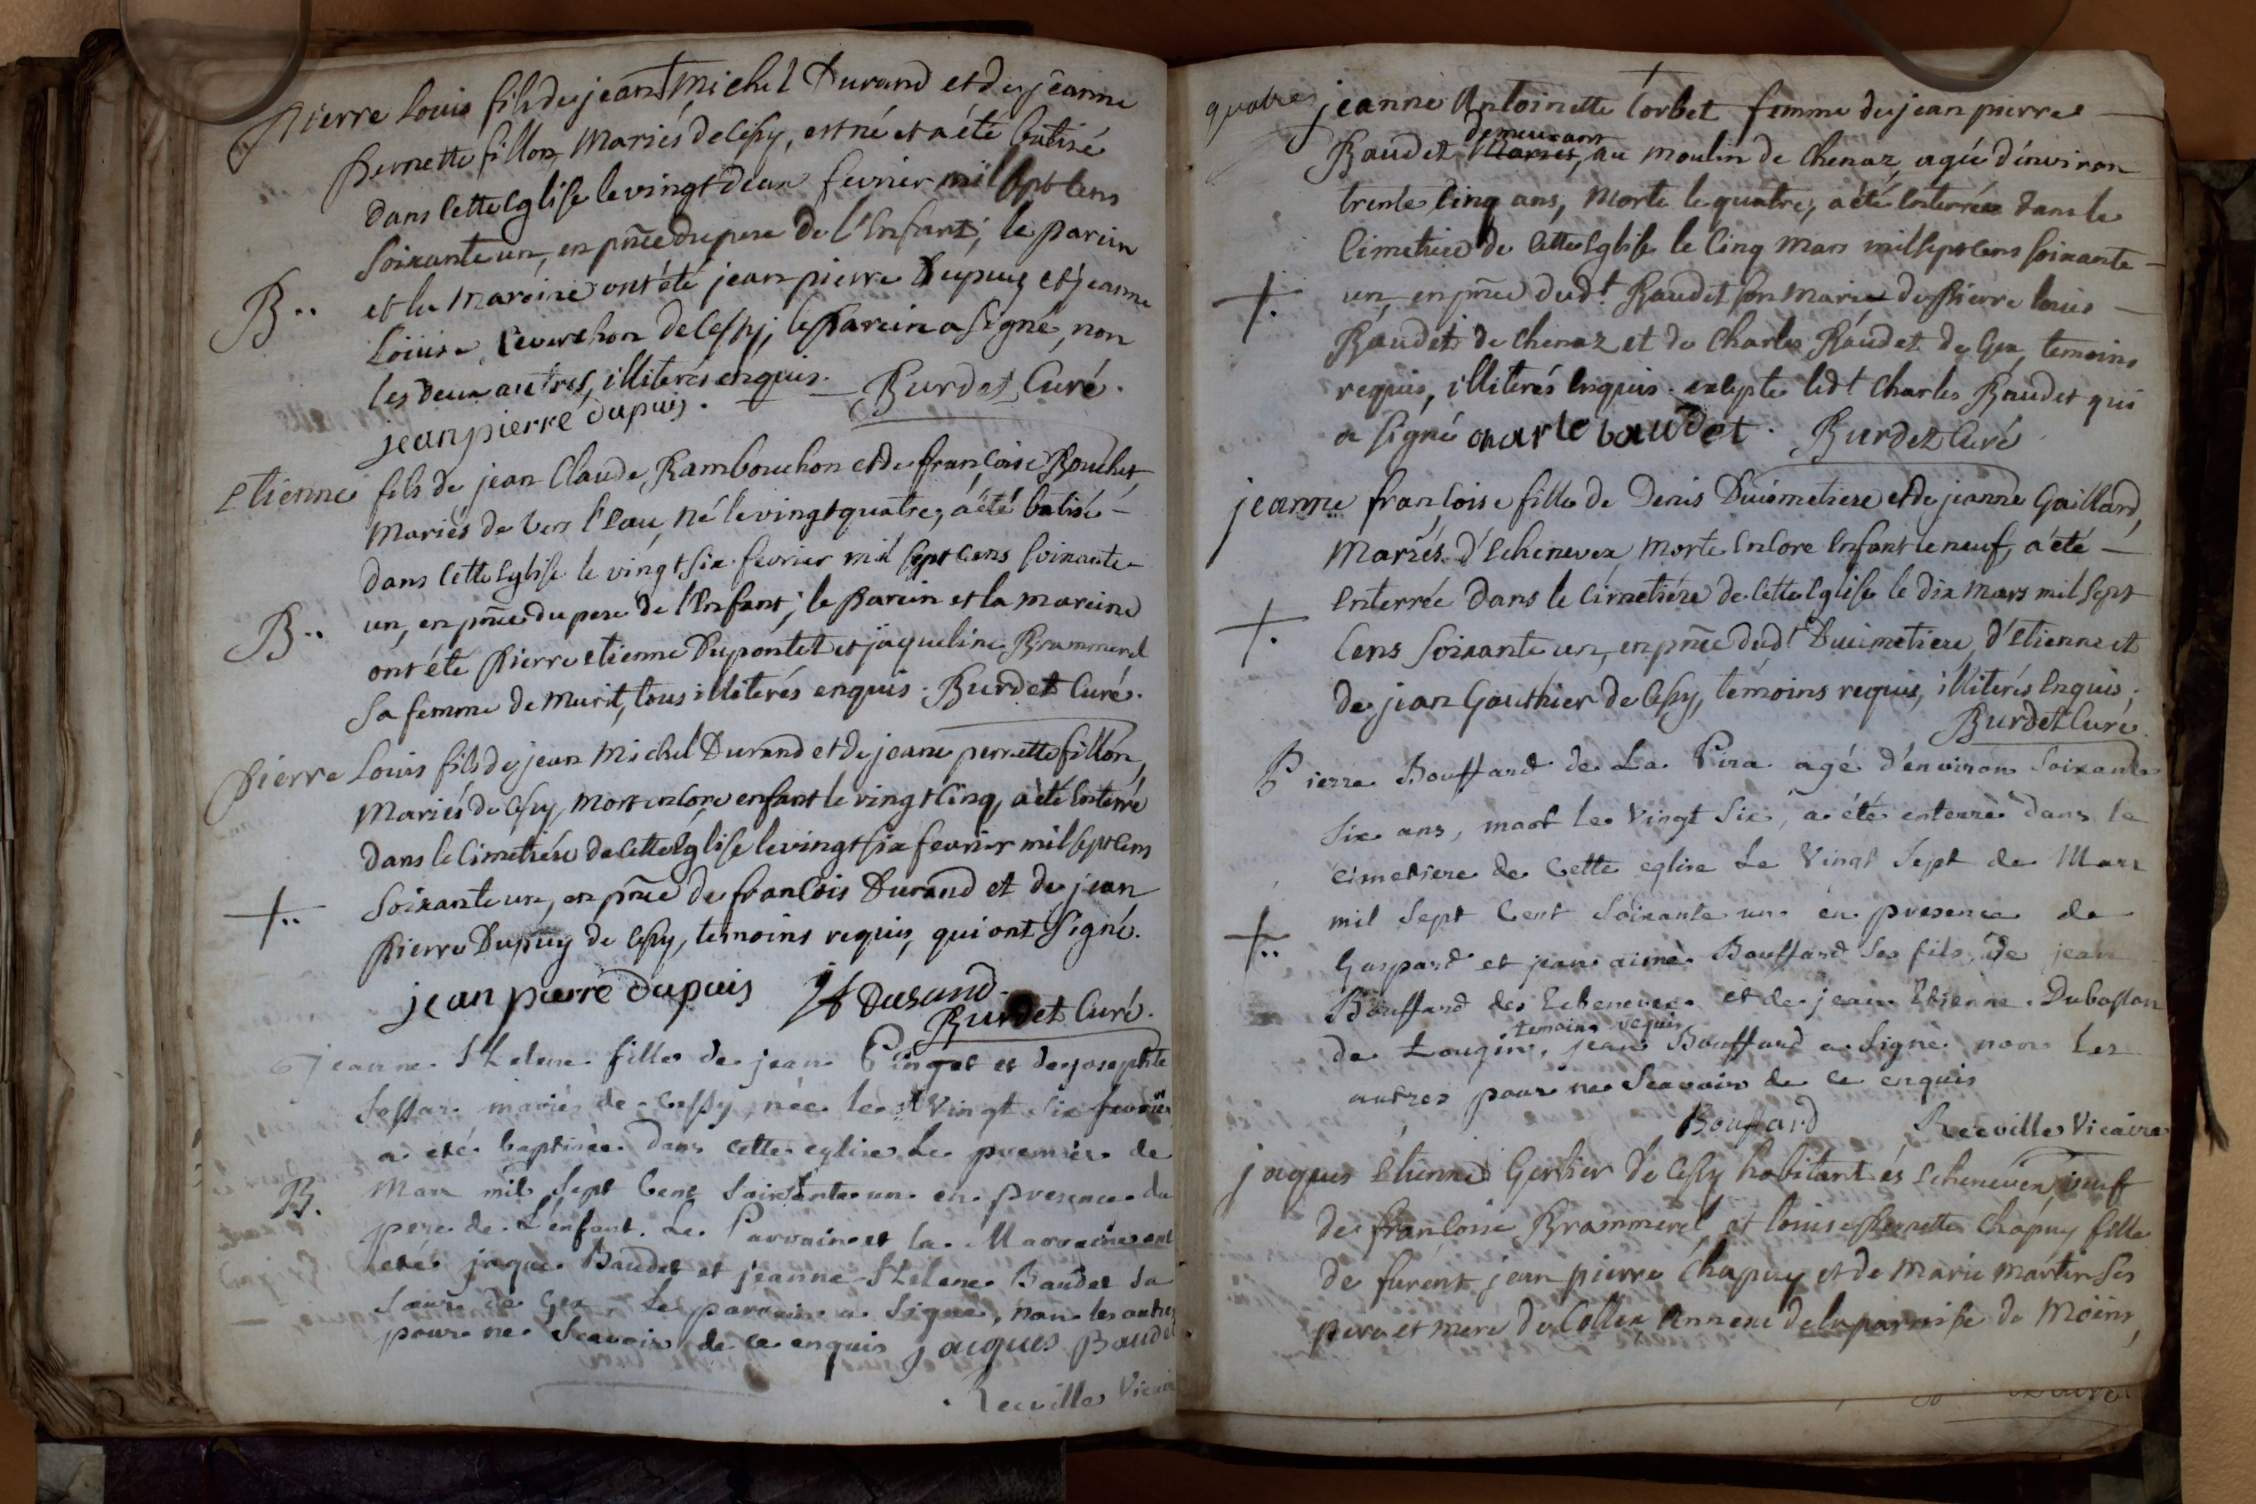 Pierre Louis fils de jean Michel Durand et de jeanne
Pernette fillon Mariés de Cessy, est né et a été batisé
dans cette Eglise le vingt deux fevrier mil sept cens
soixante un, en pñce du pere de l'Enfant; le parein
B.. et la mareine ont été jean pierre Dupuy et jeanne
Louise de Cessy; le Parein a signé, non
les deux autres, illiterés enquis. Burdet Curé.
jean pierre dupuis.
Etienne fils de jean Claude Rambouchon et de françoise Bouchet
Mariés de Vers l'Eau, Né le vingt quatre, a été batisé
dans cette Eglise le vingt six fevrier mil sept cens soixante
B.. un, en pñce du pere de l'Enfant; le Parein et la mareine
ont été Pierre etienne Dupontet et jaqueline Brammerel
sa femme de Murit, tous illiterés enquis. Burdet Curé.
Pierre Louis fils de jean Michel Durand et de jeane pernette fillon,
Mariés de Cessy, Mort encore enfant le vingt cinq, a été enterré
dans le Cimetiére de cette Eglise le vingt six fevrier mil sept cens
+.. soixante un, en pñce de francois Durand et de jean
Pierre Dupuy de Cessy, temoins requis, qui ont signé.
jean pierre dupuis Durand
Burdet Curé.
jeanne Helene fille de jean Pinget et de josephte
mariés de Cessy, née le vingt six fevrier
a eté baptisée dans cette eglise Le premier de
B. Mars mil sept Cent soixante un en presence du
pere de L'enfant. Le Parrain et la Marraine ont
eté jaque Baudet et jeanne Helene Baudet sa
soeur de Gex, Le parrain a signé, non les autres
pour ne scavoir de ce enquis jacques Baudet
Recville Vicaire
quatre jeanne Antoinette Corbet femme de jean pierre
demeurant
Baudet, au Moulin de Chenaz, agée d'environ
trente cinq ans, Morte le quatre, a été enterrée dans le
Cimetiére de cette Eglise le Cinq Mars mil sept cens soixante
+. un, en pñce dudt. Baudet son Mari de Pierre louis
Baudet de Chenaz et de Charles Baudet de Gex, temoins
requis, illiterés enquis excepte ledt Charles Baudet qui
a signé charle baudet. Burdet Curé
jeanne françoise fille de Denis Duimetiere et de jeanne Gaillard,
Mariés d'Echenevex, Morte encore enfant le neuf, a été
enterrée dans le Cimetiére de cette Eglise le dix Mars mil sept
+. Cens soixante un, en pñce dudt Duimetiere, d'Etienne et
de jean Gauthier de Cessy, témoins requis, illiterés enquis;
Burdet Curé
Pierre Bouffard de La Pira agé d'environ soixante
six ans, mort le Vingt six, a été enterré dans le
cimetiere de Cette eglise Le Vingt sept de Mars
+.. mil sept Cent soixante un en presence de
Gaspard et jean aimé Bouffard ses fils, de jean
Bouffard des Echenevex et de jean Etienne
temoins requis
de Tougin, jean Bouffard a signé non Les
autres pour ne scavoir de ce enquis
Bouffard Recville Vicaire
jaques Etienne Gerlier de Cessy habitant és Echenevex, veuf
de françoise Brammerel, et louise Pernette Chapuy fille
de furent jean pierre Chapuy et de Marie Martin ses
pere et mere de Collex Annexe de la paroisse de Moins,